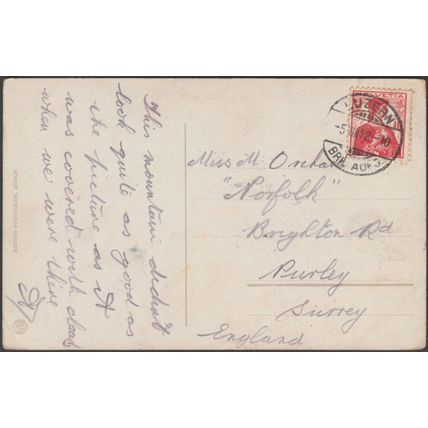 This mountain didn't
look quite as good as
the picture as it
was covered with clouds
when we were there
Miss M. Orchard
"Norfolk"
Brighton Rd
Purley
Surrey
England
HELVETIA
LUZERN
BRF. AUFG.